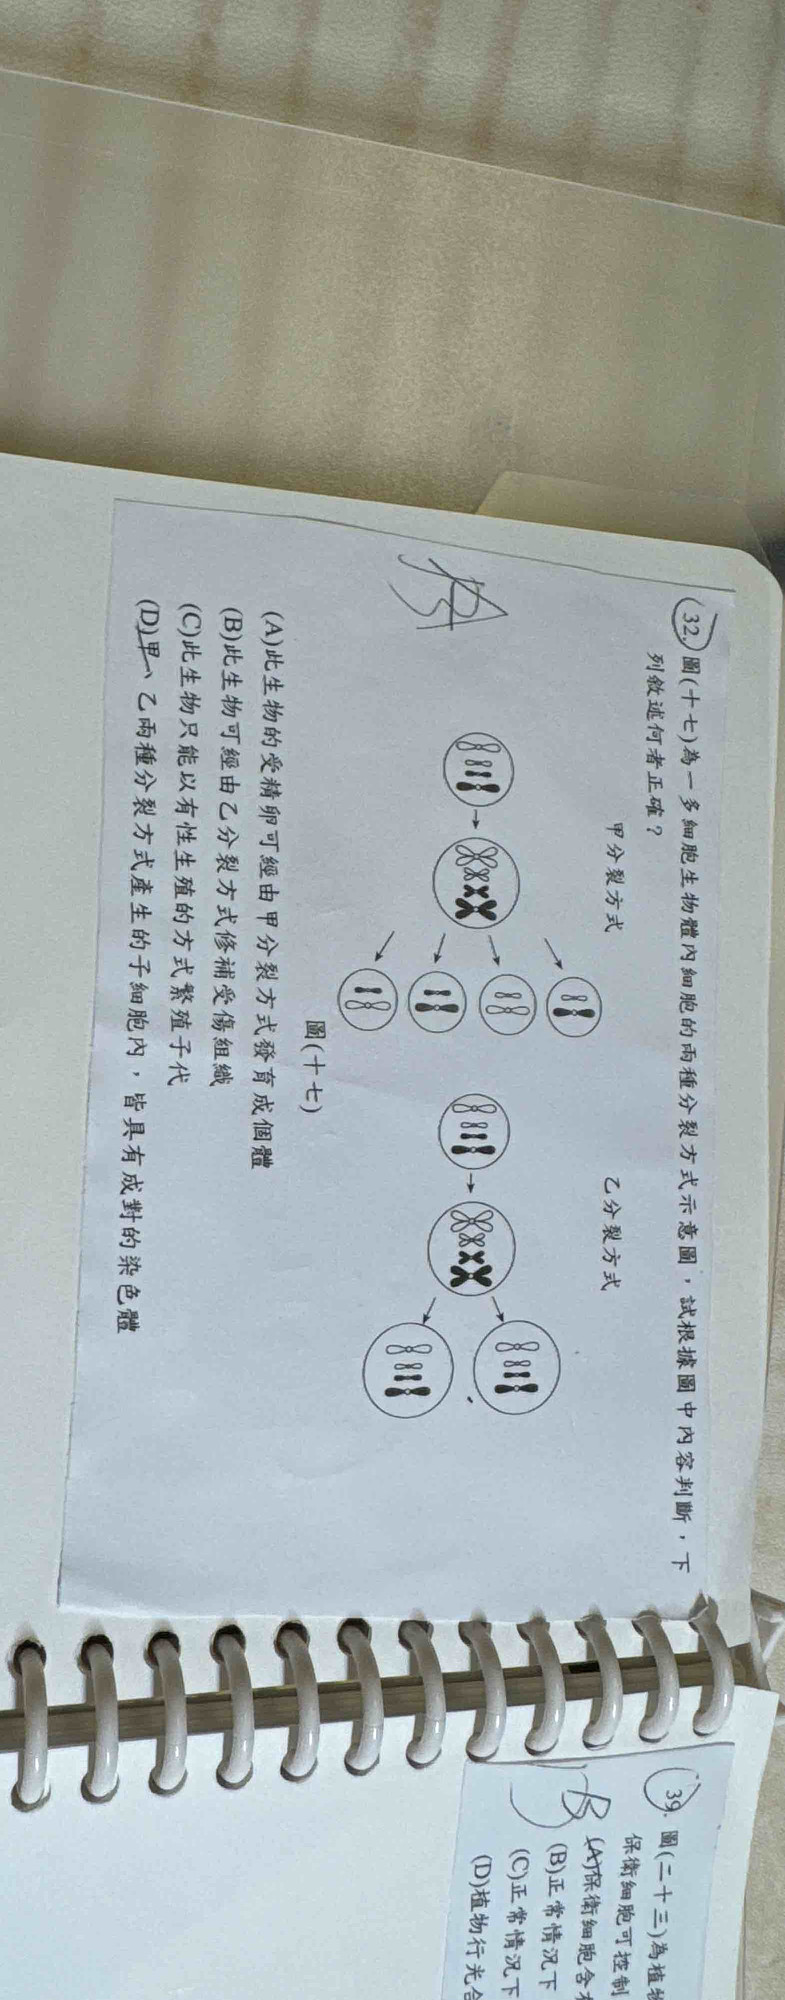 32. 圖(十七)為一多細胞生物體內細胞的兩種分裂方式示意圖，試根據圖中內容判斷，下
列敘述何者正確？
甲分裂方式
乙分裂方式
圖(十七)
(A)此生物的受精卵可經由甲分裂方式發育成個體
(B)此生物可經由乙分裂方式修補受傷組織
(C)此生物只能以有性生殖的方式繁殖子代
(D)甲、乙兩種分裂方式產生的子細胞內，皆具有成對的染色體
39. 圖(二十三)為植物
保衛細胞可控制
B
(A)保衛細胞含
(B)正常情況下
(C)正常情況下
(D)植物行光合